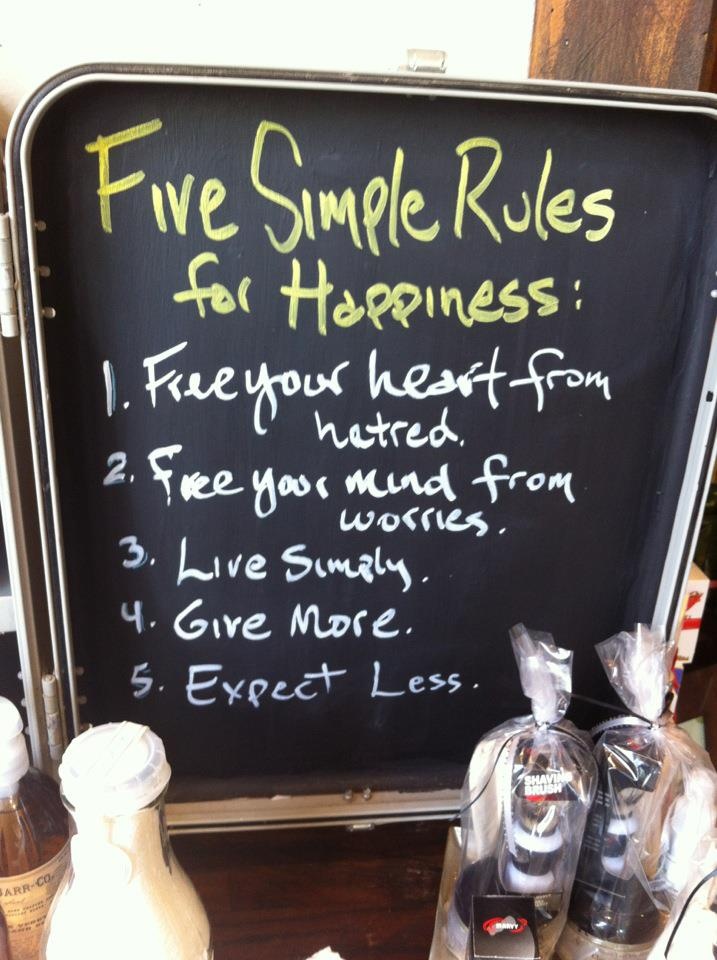 Five Simple Rules
for Happiness:
1. Free your heart from
hatred.
2. Free your mind from
worries.
3. Live Simply.
4. Give More.
5. Expect Less.
SHAVING
BRUSH
BARR-CO.
MARVY